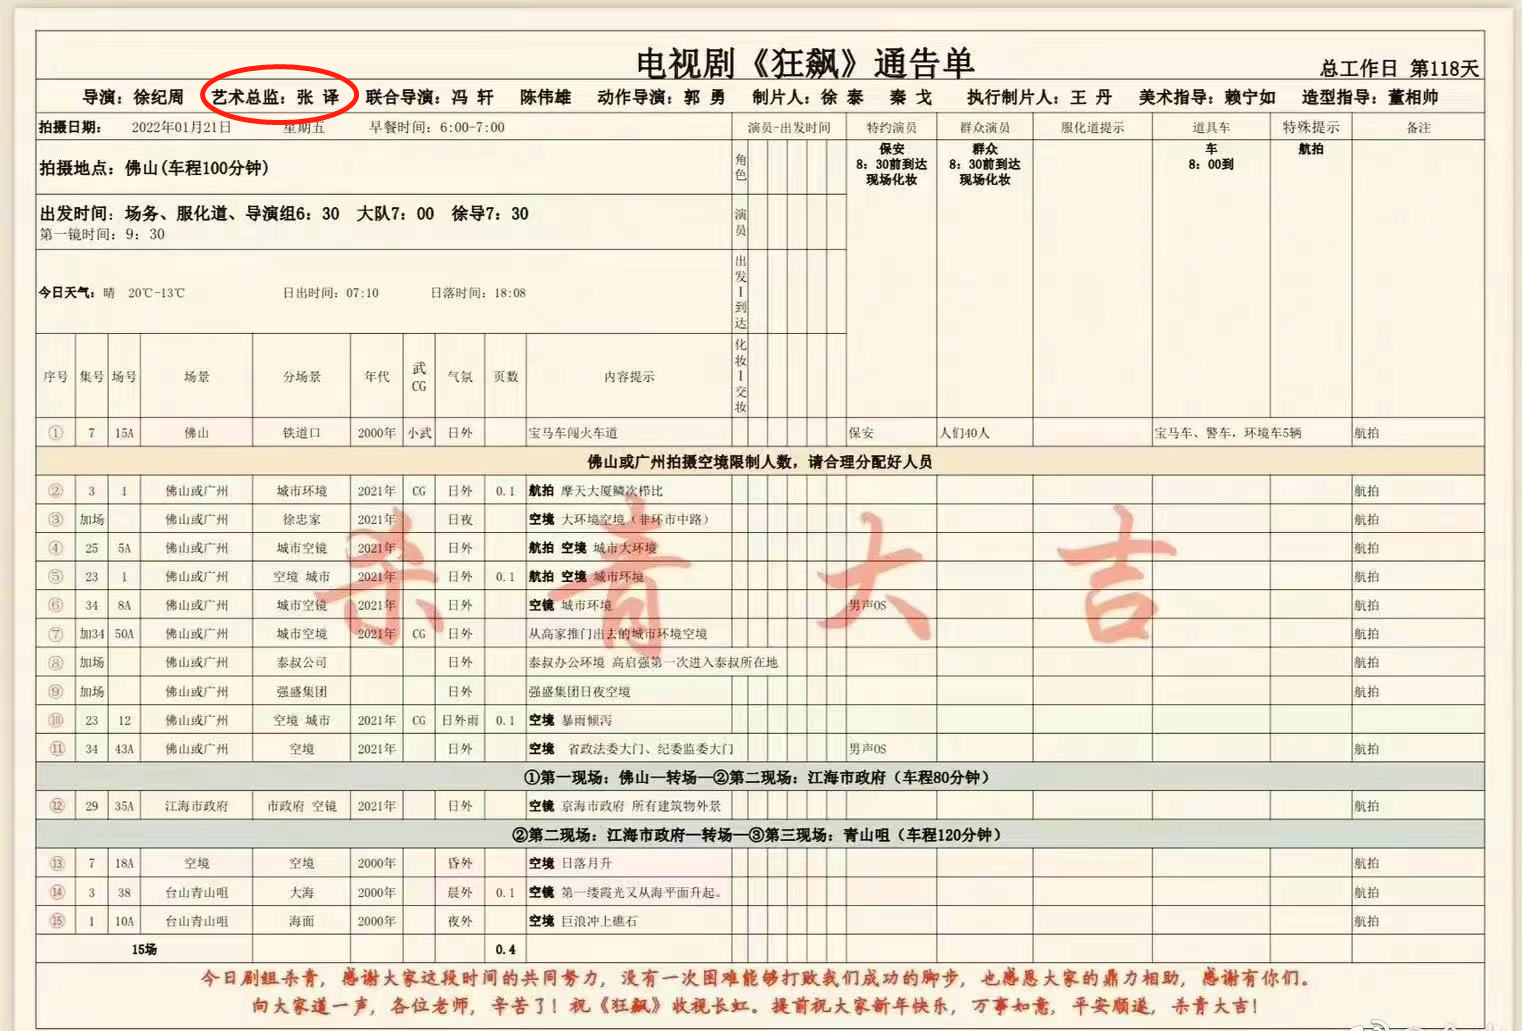 电视剧《狂飙》通告单
总工作日 第118天
导演：徐纪周 艺术总监：张 译 联合导演：冯 轩 陈伟雄 动作导演：郭 勇 制片人：徐 泰 秦 戈 执行制片人：王 丹 美术指导：赖宁如 造型指导：董相帅
拍摄日期： 2022年01月21日 星期五 早餐时间：6:00-7:00 演员-出发时间 特约演员 群众演员 服化道提示 道具车 特殊提示 备注
拍摄地点：佛山(车程100分钟) 角色
保安 群众 车 航拍
8：30前到达 8：30前到达 8：00到
现场化妆 现场化妆
出发时间：场务、服化道、导演组6：30 大队7：00 徐导7：30 演员
第一镜时间：9：30
今日天气：晴 20℃-13℃ 日出时间：07:10 日落时间：18:08 出发丨到达
序号 集号 场号 场景 分场景 年代 武CG 气氛 页数 内容提示 化妆丨交妆
① 7 15A 佛山 铁道口 2000年 小武 日外 宝马车闯火车道 保安 人们40人 宝马车、警车，环境车5辆 航拍
佛山或广州拍摄空境限制人数，请合理分配好人员
② 3 1 佛山或广州 城市环境 2021年 CG 日外 0.1 航拍 摩天大厦鳞次栉比 航拍
③ 加场 佛山或广州 徐忠家 2021年 日夜 空境 大环境空境（非环市中路） 航拍
④ 25 5A 佛山或广州 城市空镜 2021年 日外 航拍 空境 城市大环境 航拍
⑤ 23 1 佛山或广州 空境 城市 2021年 日外 0.1 航拍 空境 城市环境 航拍
⑥ 34 8A 佛山或广州 城市空镜 2021年 日外 空镜 城市环境 男声OS 航拍
⑦ 加34 50A 佛山或广州 城市空境 2021年 CG 日外 从高家推门出去的城市环境空境 航拍
⑧ 加场 佛山或广州 泰叔公司 日外 泰叔办公环境 高启强第一次进入泰叔所在地 航拍
⑨ 加场 佛山或广州 强盛集团 日外 强盛集团日夜空境 航拍
⑩ 23 12 佛山或广州 空境 城市 2021年 CG 日外雨 0.1 空境 暴雨倾泻
⑪ 34 43A 佛山或广州 空境 2021年 日外 空境 省政法委大门、纪委监委大门 男声OS 航拍
杀青大吉
①第一现场：佛山—转场—②第二现场：江海市政府（车程80分钟）
⑫ 29 35A 江海市政府 市政府 空镜 2021年 日外 空镜 京海市政府 所有建筑物外景 航拍
②第二现场：江海市政府—转场—③第三现场：青山咀（车程120分钟）
⑬ 7 18A 空境 空境 2000年 昏外 空境 日落月升 航拍
⑭ 3 38 台山青山咀 大海 2000年 晨外 0.1 空镜 第一缕霞光又从海平面升起。 航拍
⑮ 1 10A 台山青山咀 海面 2000年 夜外 空境 巨浪冲上礁石 航拍
15场 0.4
今日剧组杀青，感谢大家这段时间的共同努力，没有一次困难能够打败我们成功的脚步，也感恩大家的鼎力相助，感谢有你们。
向大家道一声，各位老师，辛苦了！祝《狂飙》收视长虹。提前祝大家新年快乐，万事如意，平安顺遂，杀青大吉！